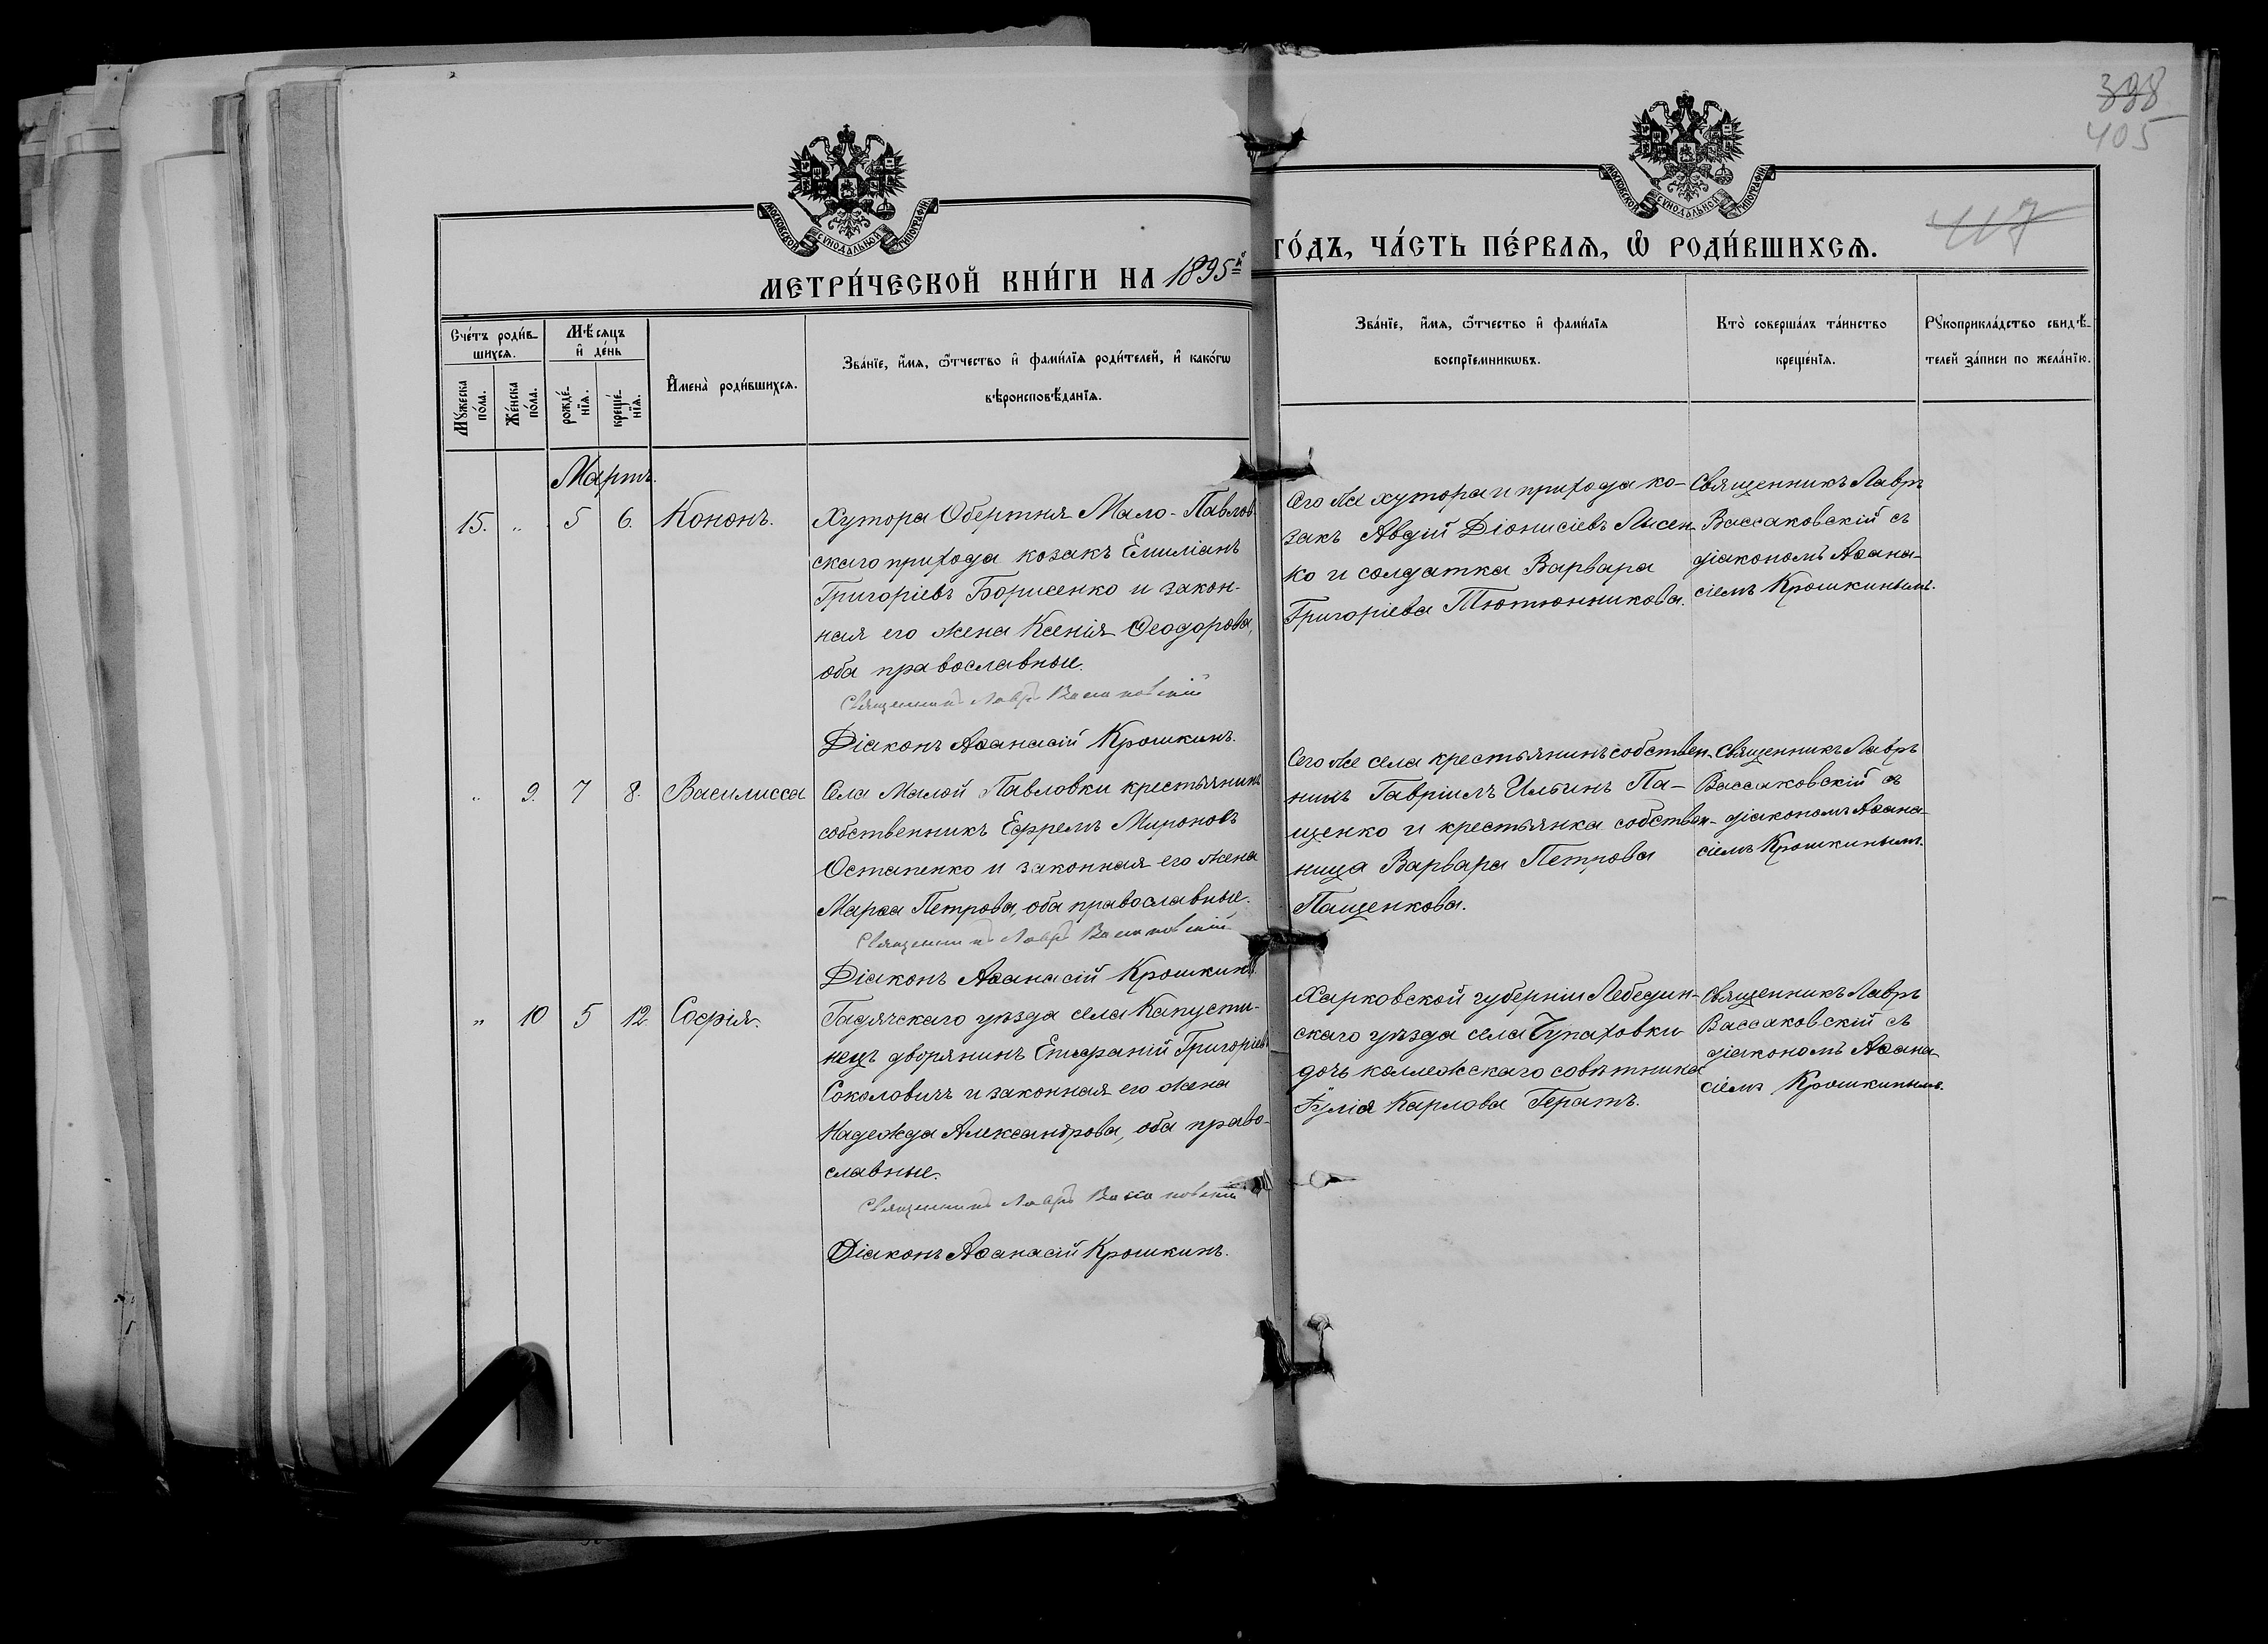 398
405
417
МОСКОВСКОЙ СУНОДАЛЬНОЙ ТИПОГРАФІИ
МОСКОВСКОЙ СУНОДАЛЬНОЙ ТИПОГРАФІИ
МЕТРИ́ЧЕСКОЙ КНИ́ГИ НА 1895й
ГО́ДЪ, ЧА́СТЬ ПЕ́РВАЯ, Ѡ҆ РОДИ́ВШИХСЯ.
Сче́тъ роди́в-
шихся.
Мѣ́сяцъ
и҆ де́нь
Мꙋ́жеска по́ла.
Же́нска по́ла.
рожде́-
нїя.
креще́-
нїя.
И҆мена̀ роди́вшихся.
Зва́нїе, и҆́мя, ѻ҆́тчество и҆ фами́лїя роди́телей, и҆ како́гѡ
вѣроисповѣ́данїя.
Зва́нїе, и҆́мя, ѻ҆́тчество и҆ фами́лїя
воспрїемникѡвъ.
Кто̀ соверша́лъ та́инство
креще́нїя.
Рꙋкоприкла́дство свидѣ́-
телей за́писи по жела́нїю.
Мартъ.
15. „ 5 6. Кононъ.
Хутора Обертня Мало-Павлов-
скаго прихода козакъ Емиліанъ
Григоріевъ Борисенко и закон-
ная его жена Ксенія Ѳеодорова,
оба православные.
Священникъ Лавръ Вассаковскій
Діаконъ Аѳанасій Крошкинъ.
Сего же хутора и прихода ко-
закъ Авдій Діонисіевъ Лисен-
ко и солдатка Варвара
Григоріева Тютюнникова.
Священникъ Лавръ
Вассаковскій съ
діакономъ Аѳана-
сіемъ Крошкинымъ.
„ 9. 7 8. Василисса
Села Малой Павловки крестьянинъ
собственникъ Ефремъ Мироновъ
Остапенко и законная его жена
Марѳа Петрова, оба православные.
Священникъ Лавръ Вассаковскій
Діаконъ Аѳанасій Крошкинъ.
Сего же села крестьянинъ собствен-
никъ Гавріилъ Ильинъ Па-
щенко и крестьянка собствен-
ница Варвара Петрова
Пащенкова.
Священникъ Лавръ
Вассаковскій съ
діакономъ Аѳана-
сіемъ Крошкинымъ.
„ 10 5 12 Софія.
Гадячскаго уѣзда села Капусти-
нецъ дворянинъ Епифаній Григоріевъ
Соколовичъ и законная его жена
Надежда Александрова, оба право-
славные.
Священникъ Лавръ Вассаковскій
Діаконъ Аѳанасій Крошкинъ.
Харковской губерніи Лебедин-
скаго уѣзда села Чупаховки
дочь коллежскаго совѣтника
Юлія Карлова Гератъ.
Священникъ Лавръ
Вассаковскій съ
діакономъ Аѳана-
сіемъ Крошкинымъ.